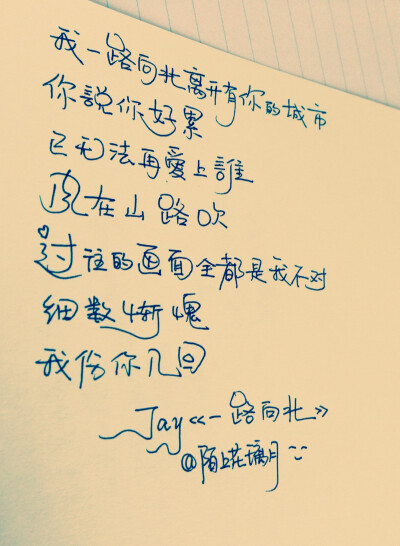 我一路向北离开有你的城市
你説你好累
已无法再愛上誰
风在山路吹
过往的画面全都是我不对
细数惭愧
我伤你几回
Jay《一路向北》
@陌上花璃月